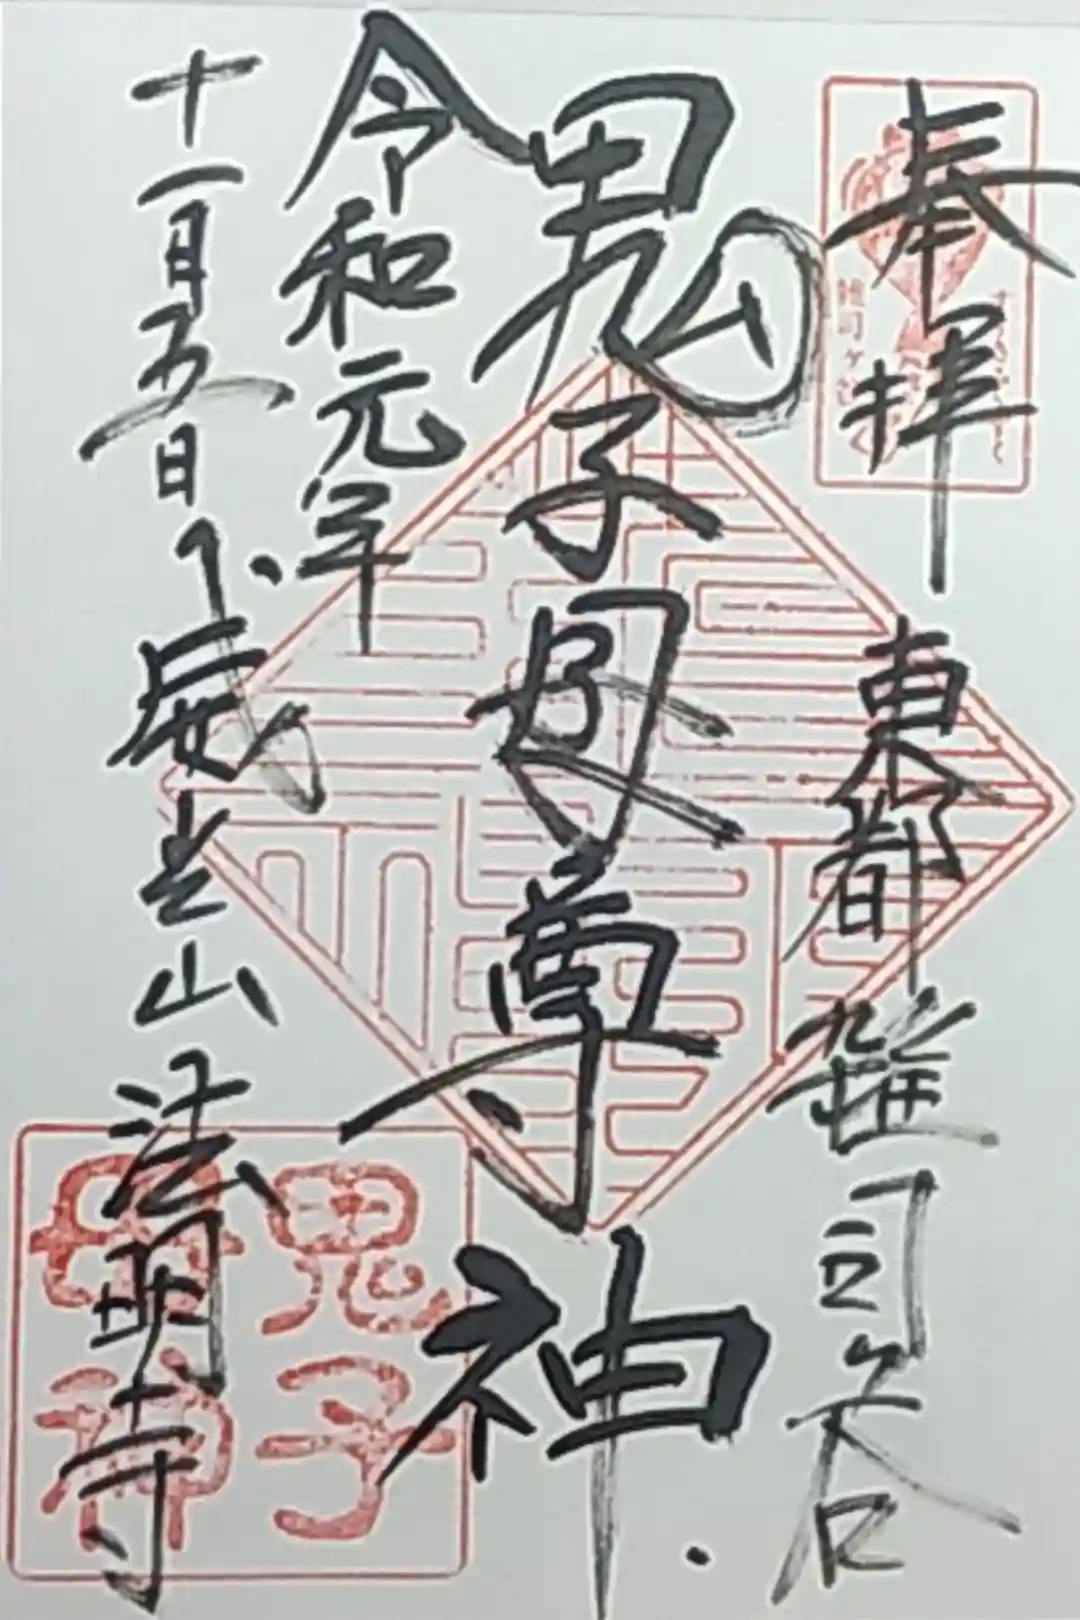 奉拝
東都 雑司ヶ谷
鬼子母尊神
令和元年
十一月五日
威光山 法明寺
鬼子
母神